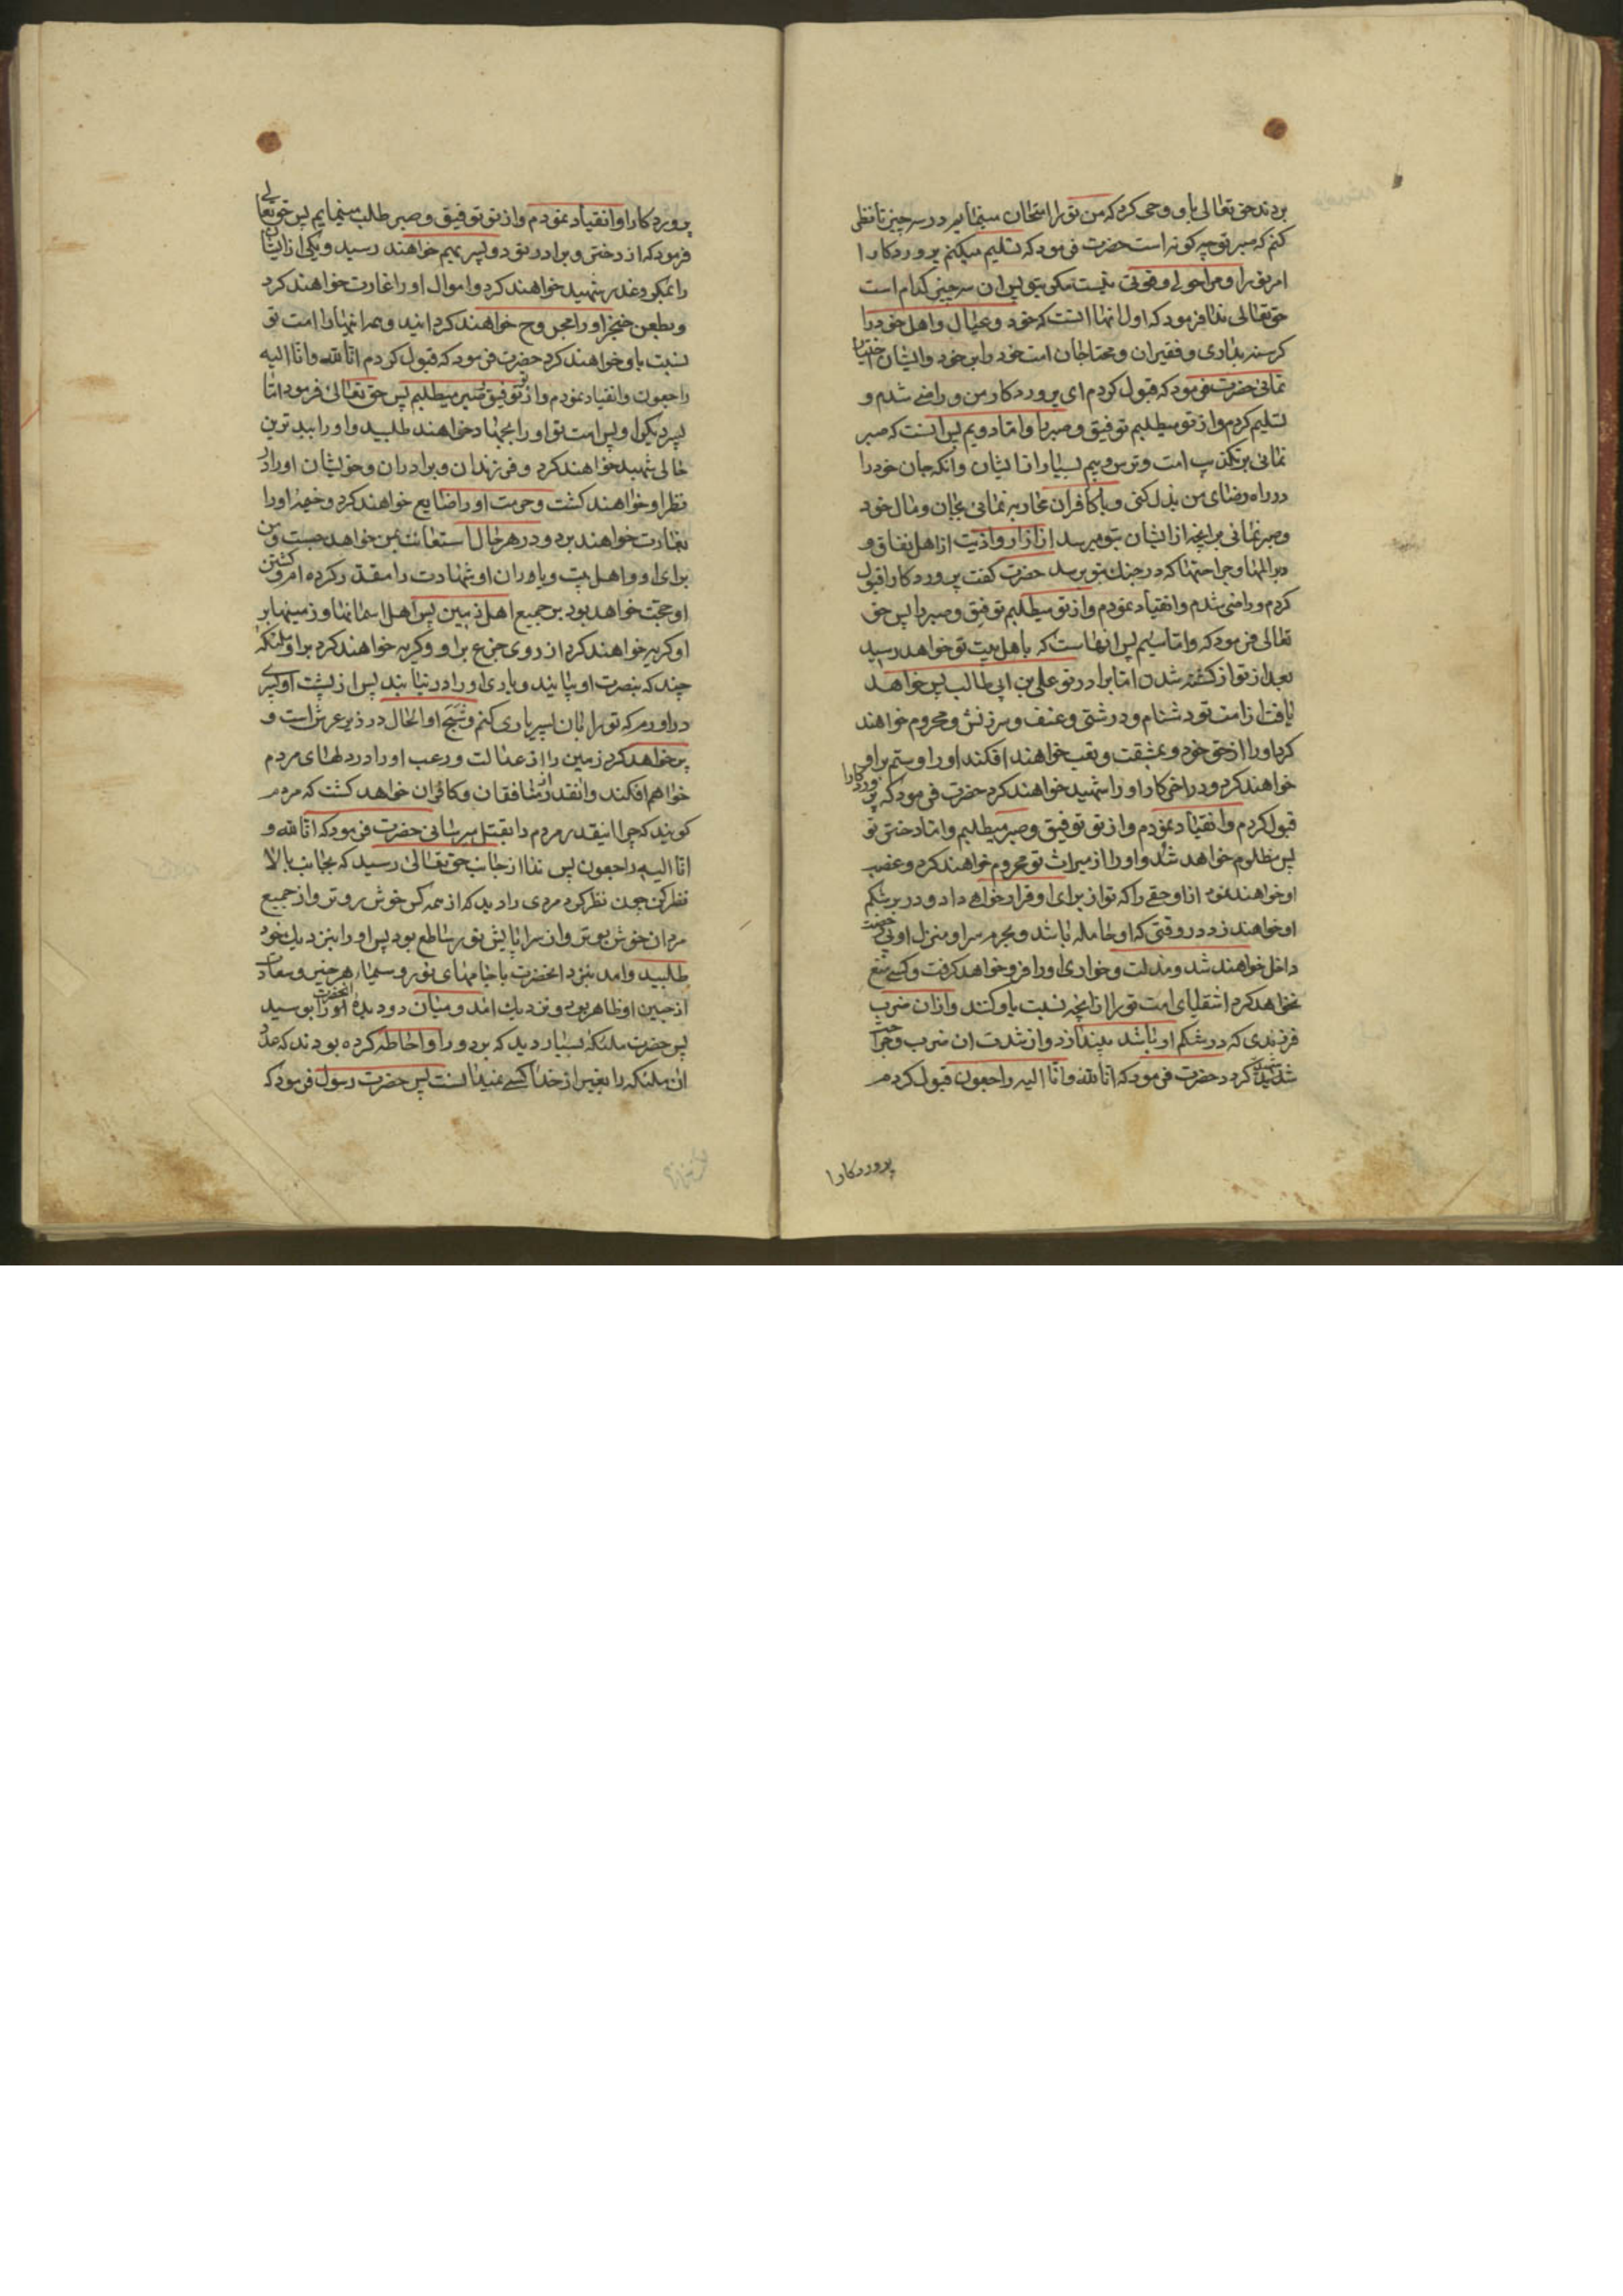 بردند حق تعالی باو وحی کرد که من تو را امتحان مینمایم در سه چیز تا نظر
کنم که صبر تو چه کونه است حضرت فرمود که تسلیم میکنم پروردکارا
امر تو را و مرا حول و قوتی نیست مکر بتو پس ان سه چیز کدام است
حق تعالی ندا فرمود که اول انها انست که خود و عیال و اهل خود را
کرسنه بداری و فقیران و محتاجان امت خود را بر خود و ایشان اختیار
نمائی حضرت فرمود که قبول کردم ای پروردکار من و راضی شدم و
تسلیم کردم و از تو میطلبم توفیق و صبر را و اما دویم پس انست که صبر
نمائی بر تکذیب امت و ترس و بیم بسیار از ایشان و انکه جان خود را
در راه رضای من بذل کنی و با کافران محاربه نمائی بجان و مال خود
و صبر نمائی بر انچه از ایشان بتو میرسد از ازار و اذیت از اهل نفاق و
بر المها و جراحتها که در جنك بتو برسد حضرت کفت پروردکارا قبول
کردم و راضی شدم و انقیاد نمودم و از تو میطلبم توفیق و صبر را پس حق
تعالی فرمود که و اما سیم پس انهاست که باهل بیت تو خواهد رسید
بعد از تو از کشته شدن اما برادر تو علی بن ابی طالب پس خواهد
یافت از امت تو دشنام و درشتی و عنف و سرزنش و محروم خواهند
کرد او را از حق خود و بمشقت و تعب خواهند افکند او را و ستم بر او
خواهند کرد و در اخر کار او را شهید خواهند کرد حضرت فرمود که پروردکارا
قبول کردم و انقیاد نمودم و از تو توفیق و صبر میطلبم و اما دختر تو
پس مظلوم خواهد شد و او را از میراث تو محروم خواهند کرد و غصب
او خواهند نمود از او حقی را که تو از برای او قرار خواهی داد و در بر شکم
او خواهند زد در وقتی که او حامله باشد و بحرم سرا و منزل او بی رخصت
داخل خواهند شد و مذلت و خواری او را فرو خواهد کرفت و کسی منع
نخواهد کرد اشقیای امت تو را از انچه نسبت باو کنند و از ان ضرب
فرزندی که در شکم او باشد بیندازد و از شدت ان ضرب و جراحت
شهید کردد حضرت فرمود که انا لله و انا الیه راجعون قبول کردم
پروردکارا
پروردکارا و انقیاد نمودم و از تو توفیق و صبر طلب مینمایم پس حق تعالی
فرمود که از دختر و برادر تو دو پسر بهم خواهند رسید و یکی از ایشان
را بمکر و غدر شهید خواهند کرد و اموال او را غارت خواهند کرد
و بطعن خنجر او را مجروح خواهند کردانید و همه اینها را امت تو
نسبت باو خواهند کرد حضرت فرمود که قبول کردم انا لله و انا الیه
راجعون و انقیاد نمودم و از تو توفیق صبر میطلبم پس حق تعالی فرمود اما
پسر دیکر او پس امت تو او را بجهاد خواهند طلبید و او را ببدترین
حالی شهید خواهند کرد و فرزندان و برادران و خویشان او را در
نظر او خواهند کشت و حرمت او را ضایع خواهند کرد و خیمه او را
بغارت خواهند برد و در هر حال استعانت بمن خواهد جست و من
برای او و اهل بیت و یاوران او شهادت را مقدر کرده ام و کشتن
او حجت خواهد بود بر جمیع اهل زمین پس اهل اسمانها و زمینها بر
او کریه خواهند کرد از روی جزع بر او و کریه خواهند کرد بر او ملئکه
چند که بنصرت او بیایند و یاری او را در نیابند پس از پشت او پسری
در اورم که تو را بان پسر یاری کنم و شبح او الحال در زیر عرش است و
پر خواهد کرد زمین را از عدالت و رعب او را در دلهای مردم
خواهم افکند و انقدر از منافقان و کافران خواهد کشت که مردم
کویند که چرا اینقدر مردم را بقتل میرسانی حضرت فرمود که انا لله و
انا الیه راجعون پس ندا از جانب حق تعالی رسید که بجانب بالا
نظر کن چون نظر کرد مردی را دید که از همه کس خوش روتر و از جمیع
مردان خوش بوتر و از سراپایش نور ساطع بود پس او را بنزدیك خود
طلبید و امد بنزد انحضرت با جامهای نور و سیماء هر خیر و سعادت
از جبین او ظاهر بود و نزدیك امد و میان دو دیده انحضرت را بوسید
پس حضرت ملئکه بسیار دید که بر دور او احاطه کرده بودند که عدد
ان ملئکه را بغیر از خدا کسی نمیدانست پس حضرت رسول فرمود که